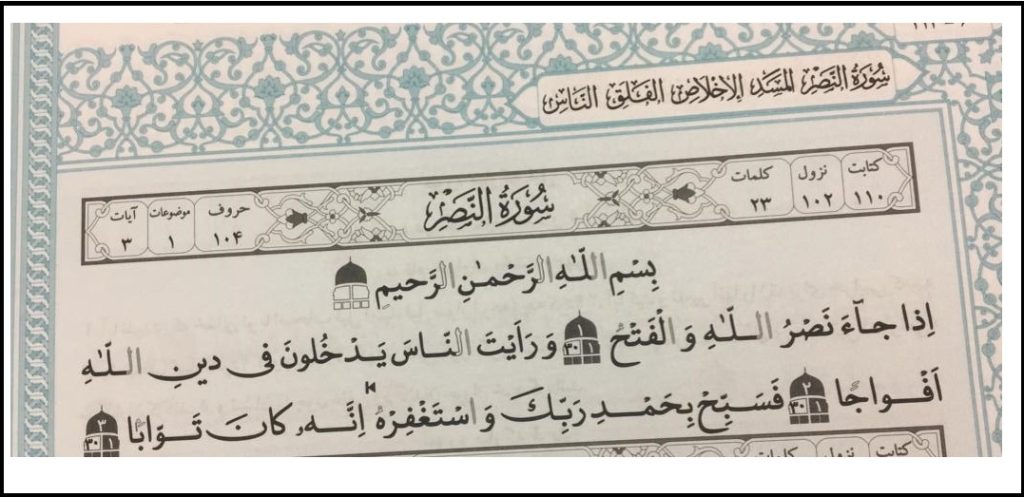 سُورَةُ النَّصْرِ المَسَدِ الإِخْلَاصِ الفَلَقِ النَّاسِ
كتابت نزول كلمات سُورَةُ النَّصْرِ حروف موضوعات آيات
١١٠ ١٠٢ ٢٣ ١٠۴ ١ ٣
بِسْمِ اللّٰهِ الرَّحْمٰنِ الرَّحيمِ
اِذا جآءَ نَصْرُ اللّٰهِ وَ الْفَتْحُ ١ وَ رَاَيْتَ النّاسَ يَدْخُلونَ فى دينِ اللّٰهِ
اَفْواجًا ٢ فَسَبِّحْ بِحَمْدِ رَبِّكَ وَ اسْتَغْفِرْهُ اِنَّه كانَ تَوّابًا ٣
كتابت نزول كلمات